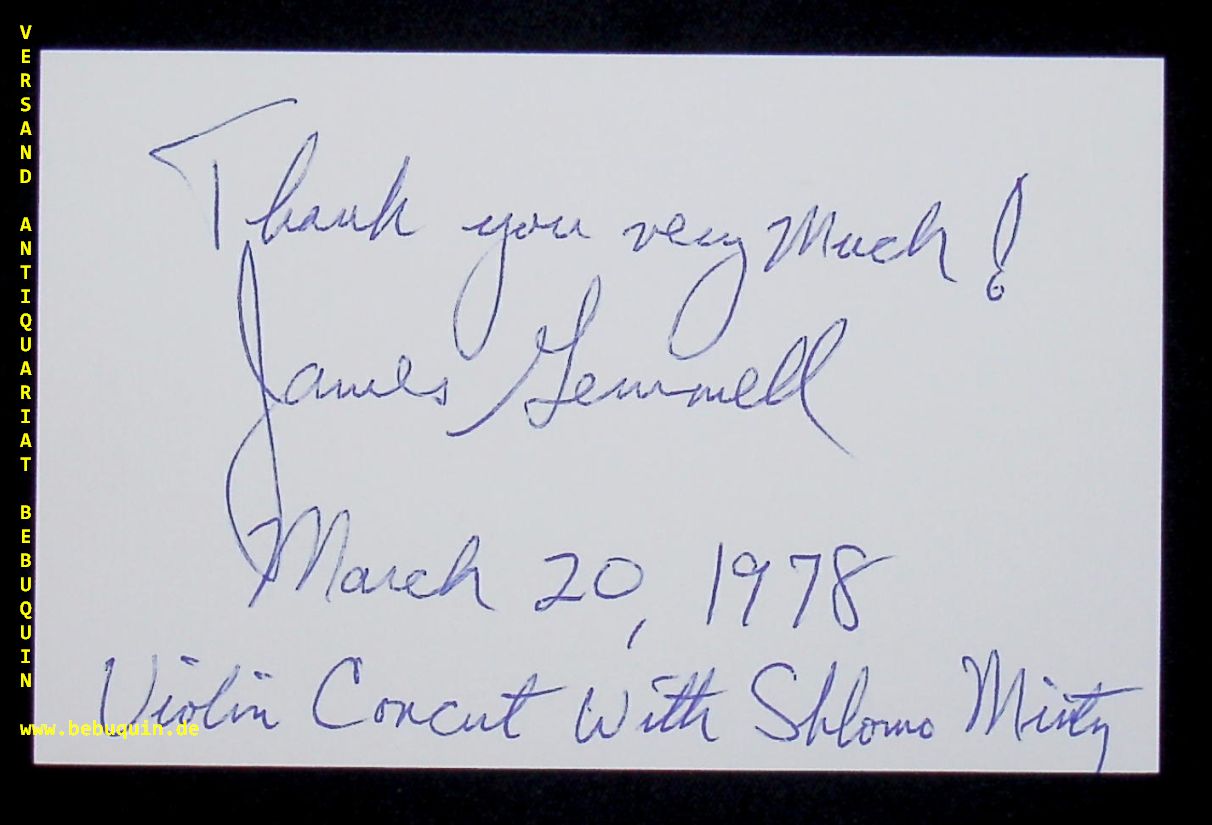 VERSAND ANTIQUARIAT BEBUQUIN
Thank you very Much!
James Gemmell
March 20, 1978
Violin Concert With Shlomo Minty
www.bebuquin.de